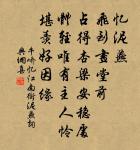 忆泥燕
飞到画堂前
占得杏梁安稳处
体轻唯有主人怜
堪羡好因缘
牛峤忆江南衔泥燕词
典藏集